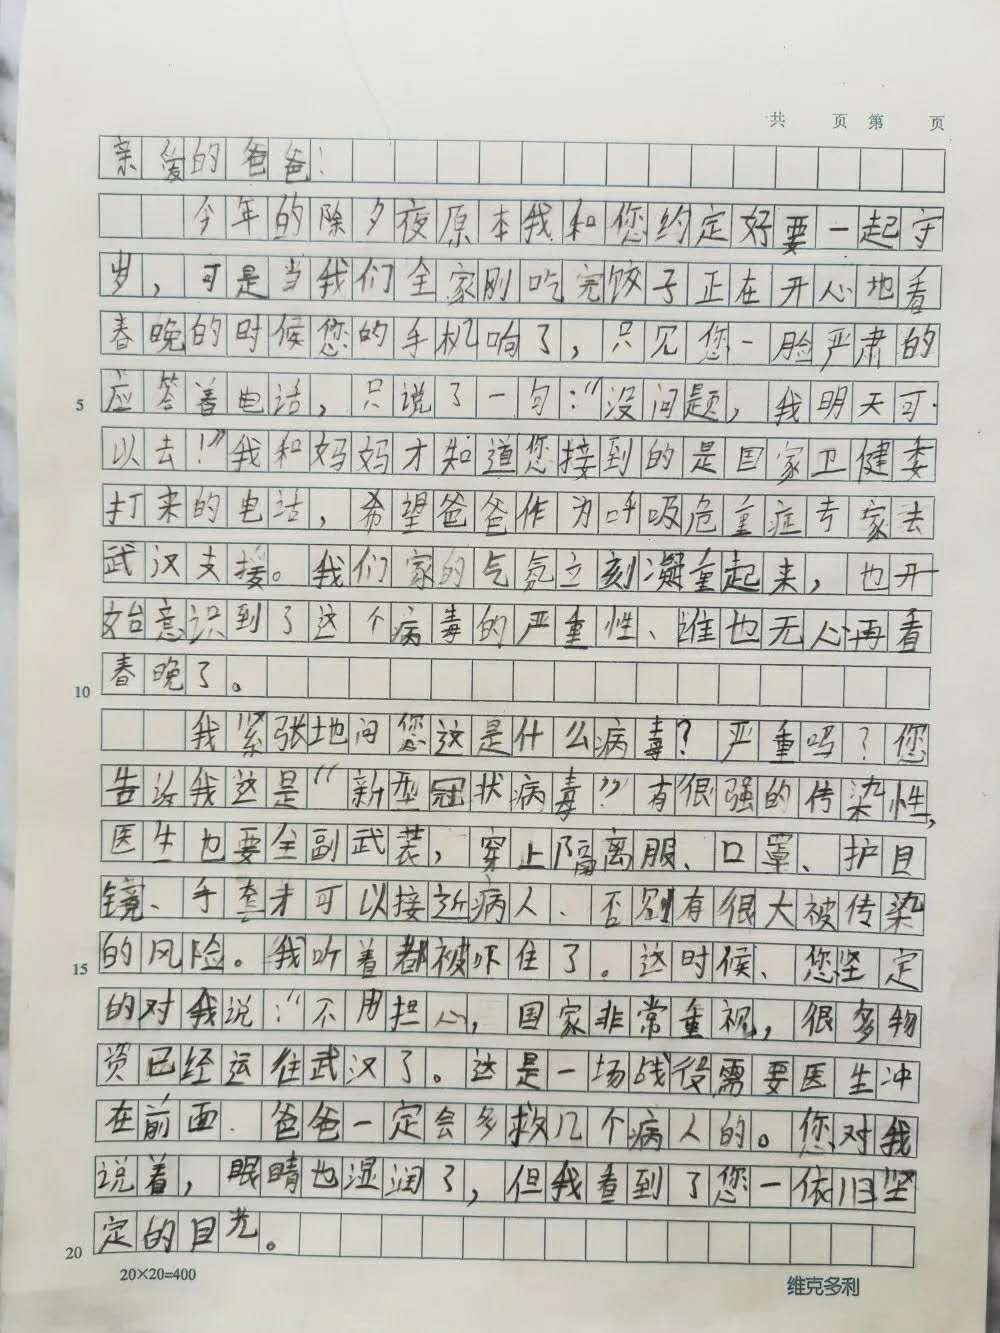 共 页 第 页
亲爱的爸爸：
今年的除夕夜原本我和您约定好要一起守
岁，可是当我们全家刚吃完饺子正在开心地看
春晚的时候您的手机响了，只见您一脸严肃的
5 应答着电话，只说了一句：“没问题，我明天可
以去！”我和妈妈才知道您接到的是国家卫健委
打来的电话，希望爸爸作为呼吸危重症专家去
武汉支援。我们家的气氛立刻凝重起来，也开
始意识到了这个病毒的严重性、谁也无心再看
10 春晚了。
我紧张地问您这是什么病毒？严重吗？您
告诉我这是“新型冠状病毒”有很强的传染性，
医生也要全副武装，穿上隔离服、口罩、护目
镜、手套才可以接近病人、否则有很大被传染
15 的风险。我听着都被吓住了。这时候、您坚定
的对我说：“不用担心，国家非常重视，很多物
资已经运往武汉了。这是一场战役需要医生冲
在前面．爸爸一定会多救几个病人的。您对我
说着，眼睛也湿润了，但我看到了您一依旧坚
20 定的目光。
20×20=400 维克多利